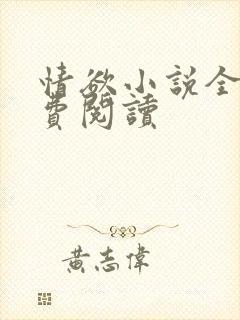 情欲小説全
費閱讀
黃志偉